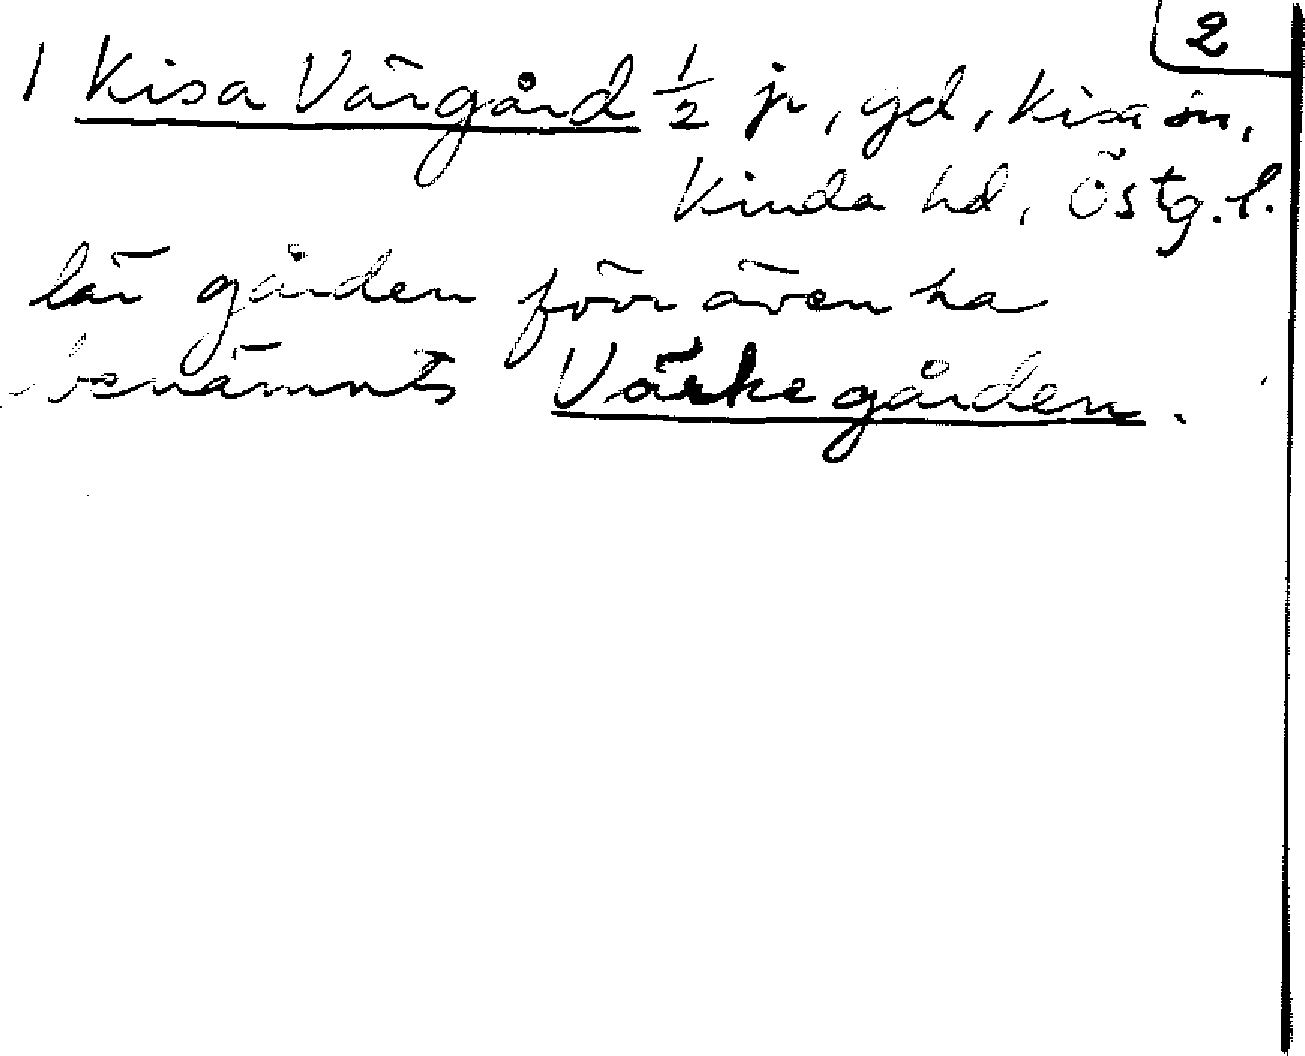 2
1 Kisa Värgård 1/2 jr, gd, Kisa sn,
Kinda hd, Östg. l.
lär gården förr även ha
benämnts Värkegården.